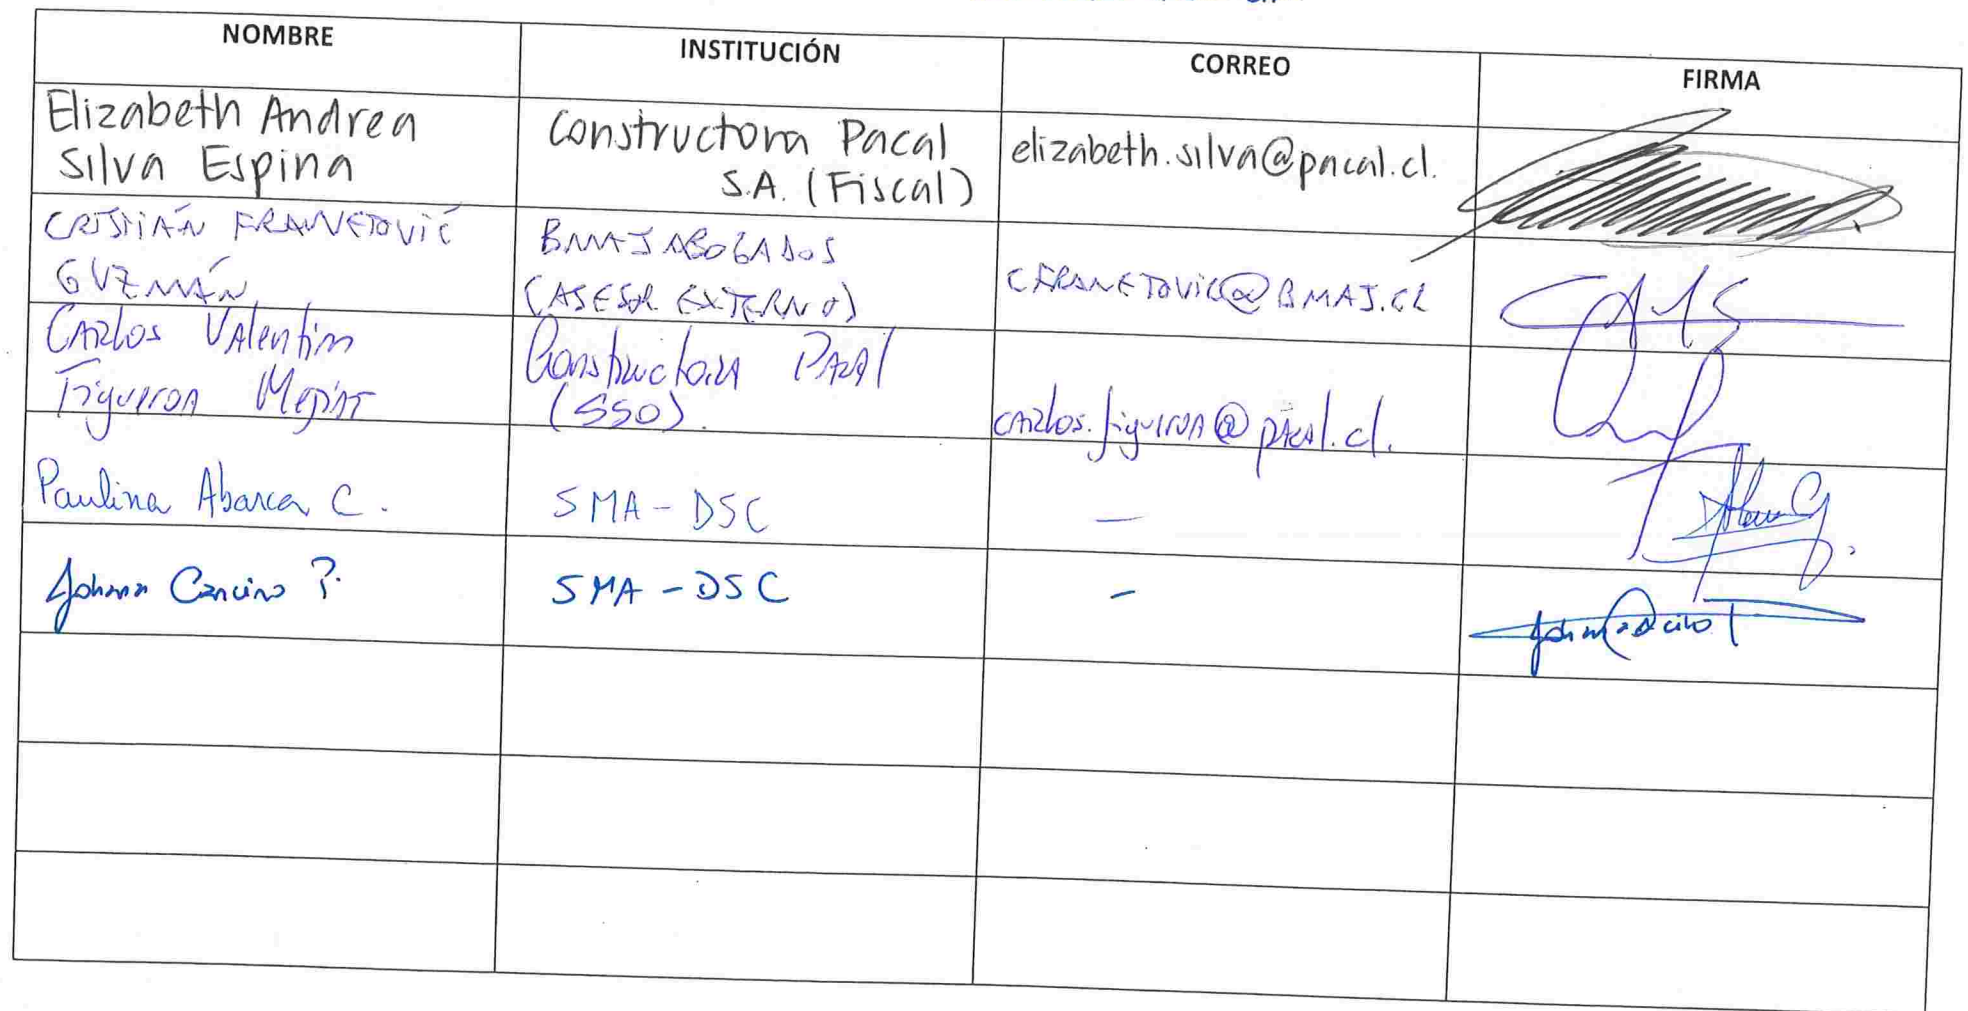 NOMBRE INSTITUCIÓN CORREO FIRMA
Elizabeth Andrea
Silva Espina
Constructora Pacal
S.A. (Fiscal)
elizabeth.silva@pacal.cl.
CRISTIÁN FRANETOVIĆ
GUZMÁN
BMAJ ABOGADOS
(ASESOR EXTERNO)
CFRANETOVIC@BMAJ.CL
Carlos Valentin
Figueroa
Constructora Pacal
(SSO).
carlos.figueroa@pacal.cl.
Paulina Abarca C.
SMA - DSC
—
Johana Cancino P.
SMA - DSC
-